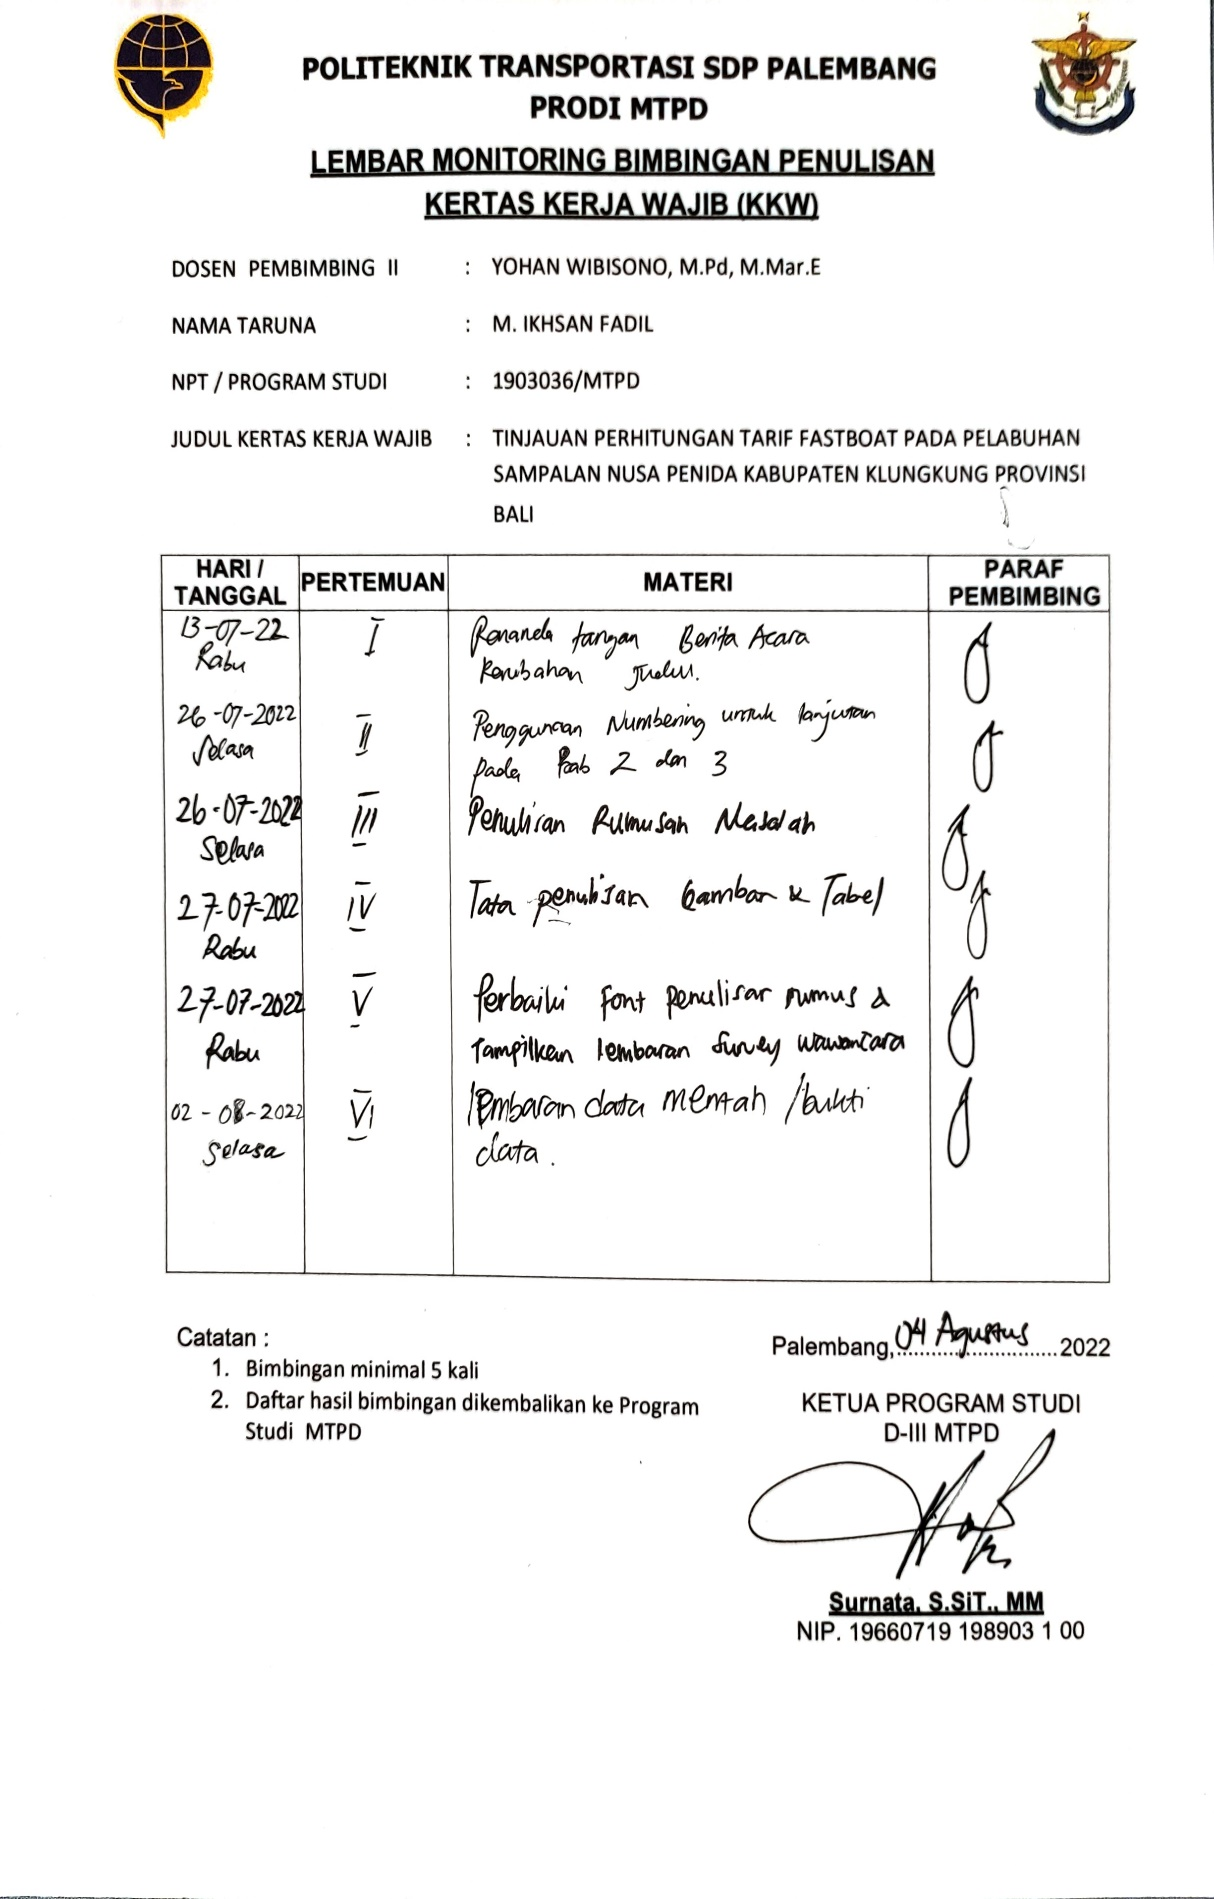 POLITEKNIK TRANSPORTASI SDP PALEMBANG
PRODI MTPD
LEMBAR MONITORING BIMBINGAN PENULISAN
KERTAS KERJA WAJIB (KKW)
DOSEN PEMBIMBING II : YOHAN WIBISONO, M.Pd, M.Mar.E
NAMA TARUNA : M. IKHSAN FADIL
NPT / PROGRAM STUDI : 1903036/MTPD
JUDUL KERTAS KERJA WAJIB : TINJAUAN PERHITUNGAN TARIF FASTBOAT PADA PELABUHAN
SAMPALAN NUSA PENIDA KABUPATEN KLUNGKUNG PROVINSI
BALI
HARI / TANGGAL PERTEMUAN MATERI PARAF PEMBIMBING
13-07-22 I tangan Berita Acara
Rabu Judul.
26-07-2022 II Penggunaan Numbering untuk lanjutan
Selasa pada Bab 2 dan 3
26-07-2022 III Penulisan Rumusan Masalah
Selasa
27-07-2022 IV Tata penulisan Gambar & Tabel
Rabu
27-07-2022 V Perbaiki font penulisan rumus &
Rabu Tampilkan lembaran survey wawancara
02-08-2022 VI lembaran data mentah /bukti
Selasa data.
Catatan :
1. Bimbingan minimal 5 kali
2. Daftar hasil bimbingan dikembalikan ke Program
Studi MTPD
Palembang, 04 Agustus 2022
KETUA PROGRAM STUDI
D-III MTPD
Surnata, S.SiT., MM
NIP. 19660719 198903 1 00